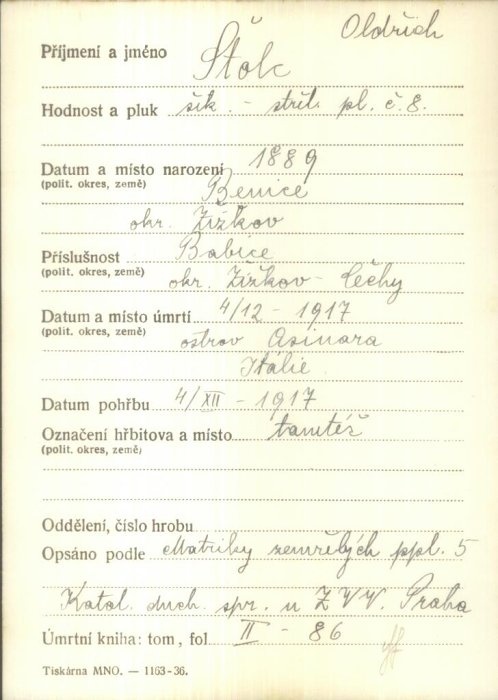 Oldřich
Příjmení a jméno Štolc
Hodnost a pluk šik. - střel. pl. č. 8.
Datum a místo narození 1889
(polit. okres, země) Benice
okr. Žižkov
Příslušnost Babice
(polit. okres, země) okr. Žižkov - Čechy
Datum a místo úmrtí 4/12 - 1917
(polit. okres, země) ostrov Asinara
Itálie.
Datum pohřbu 4/XII - 1917
Označení hřbitova a místo tamtéž
(polit. okres, země)
Oddělení, číslo hrobu
Opsáno podle Matriky zemřelých ppl. 5
Katol. duch. spr. u Z V V. Praha
Úmrtní kniha: tom, fol II - 86
Tiskárna MNO. — 1163-36.